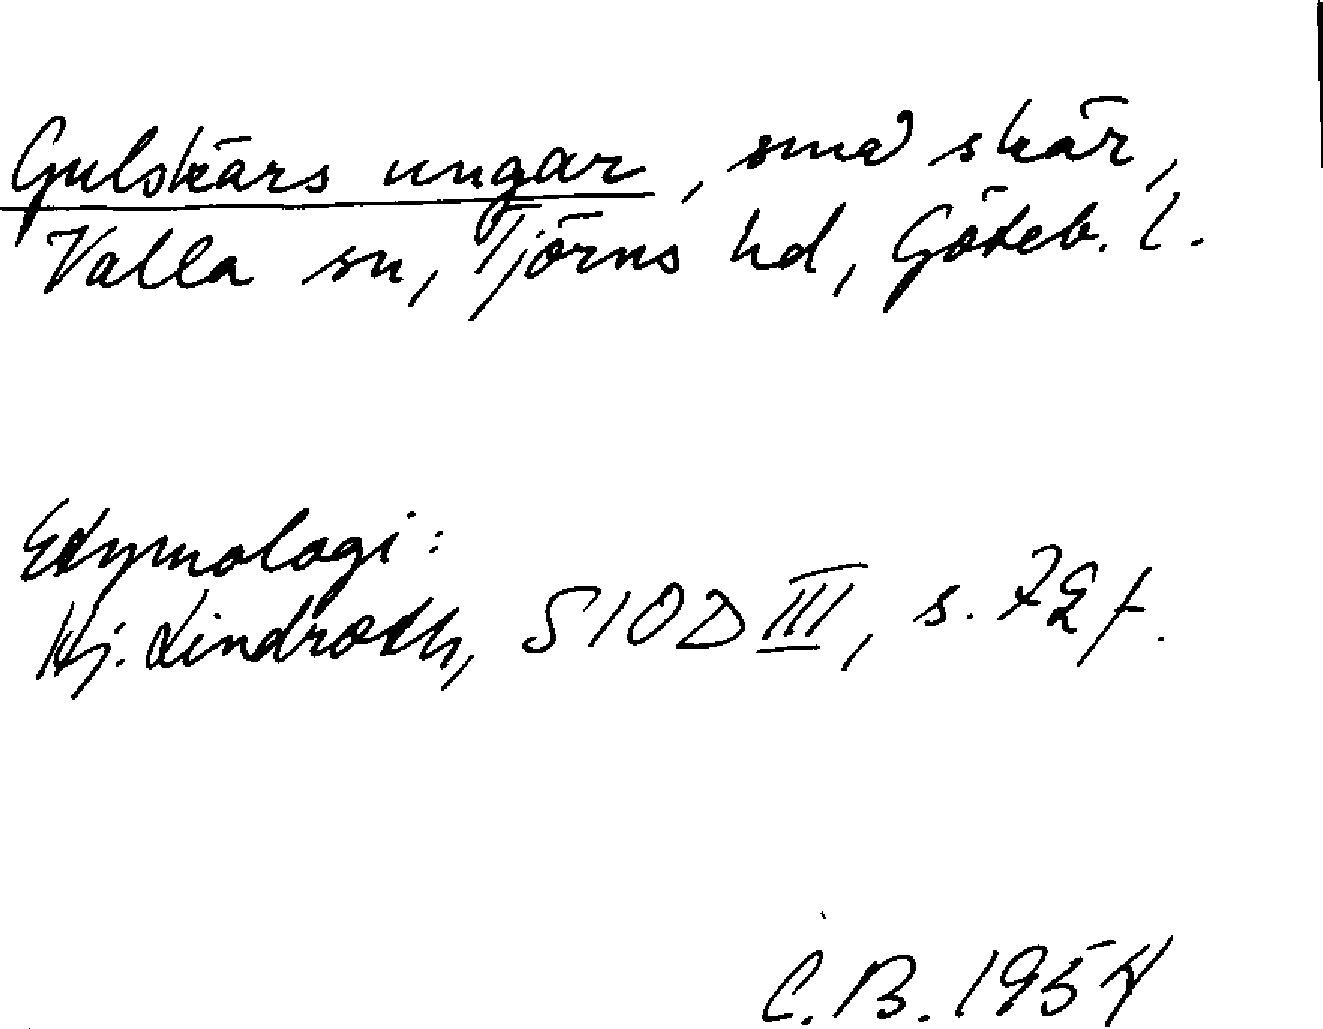 Gulskärs ungar, små skär,
Valla sn, Tjörns hd, Göteb. l.
Etymologi:
Hj. Lindroth, SIOD III, s. 72 f.
C. B. 1954